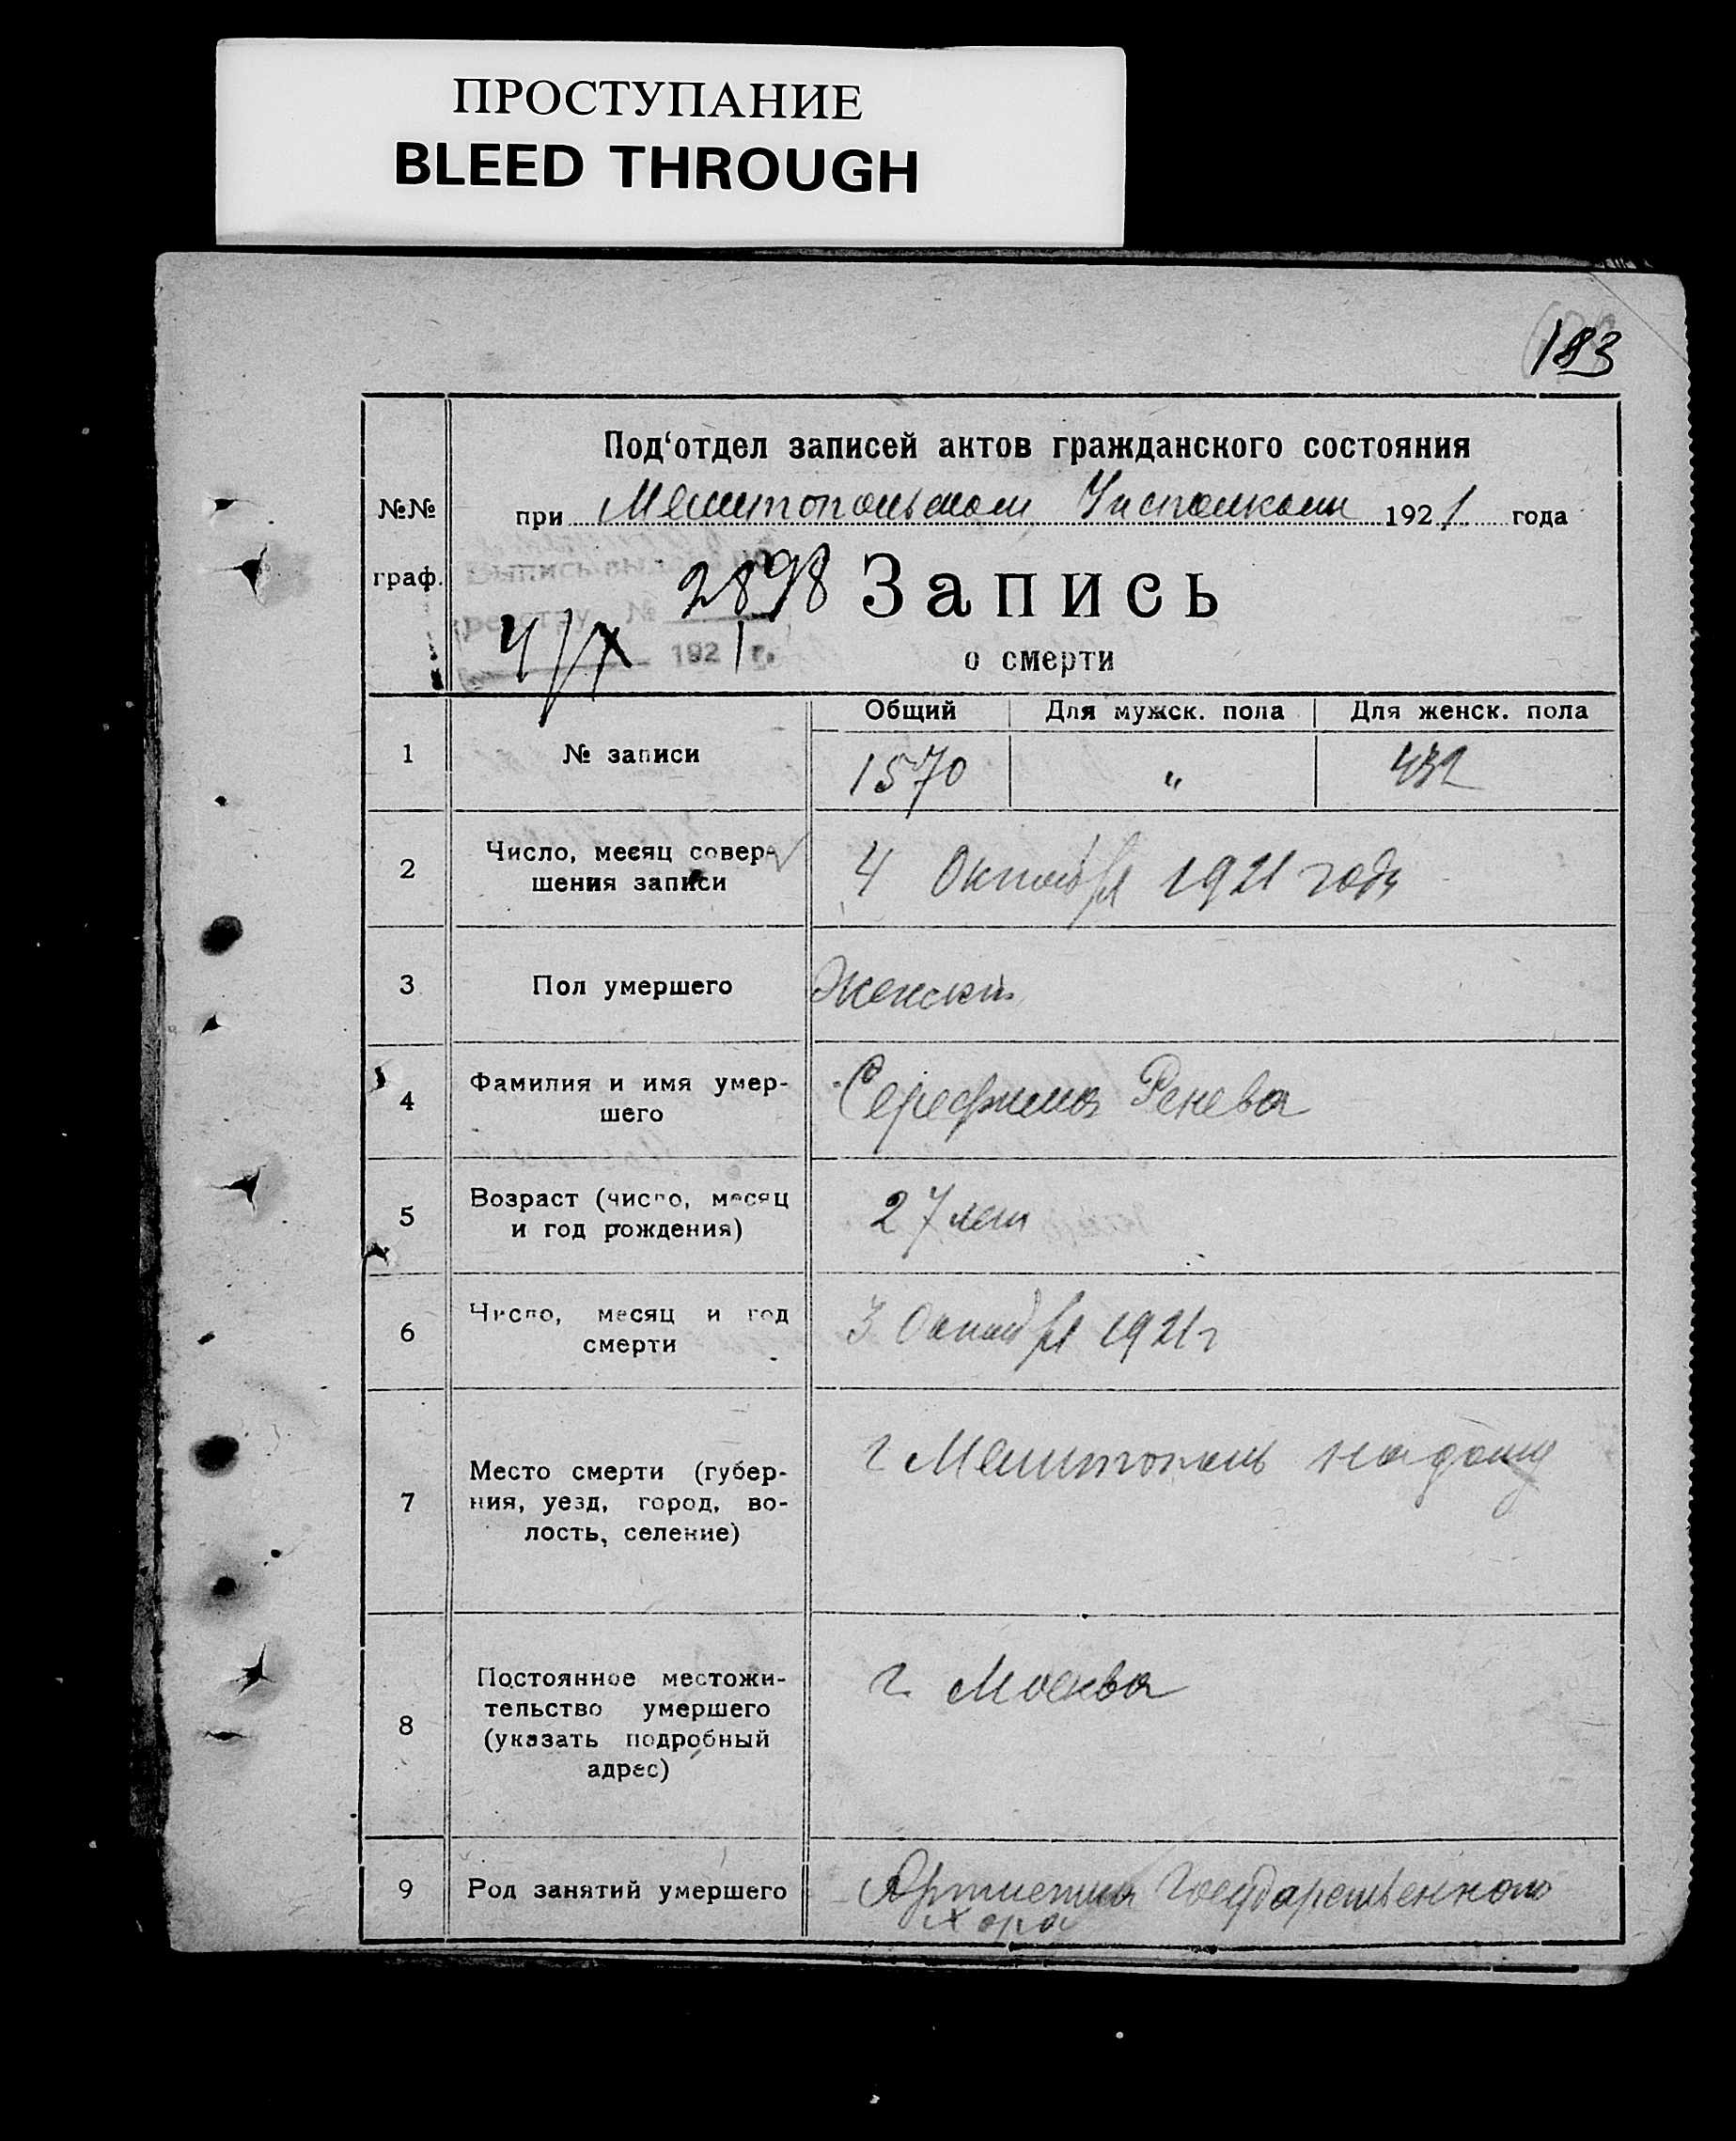 ПРОСТУПАНИЕ
BLEED THROUGH
183
Под‘отдел записей актов гражданского состояния
№№ граф.
при Мелитопольском Исполкоме 1921 года
2898 Запись
реестру №
4/X 1921 г.
о смерти
Общий Для мужск. пола Для женск. пола
1 № записи 1570 " 432
2 Число, месяц совер-
шения записи 4 Октября 1921 года
3 Пол умершего Женский
4 Фамилия и имя умер-
шего Серефима Ренева
5 Возраст (число, месяц
и год рождения) 27 лет
6 Число, месяц и год
смерти 3 Октября 1921 г
7 Место смерти (губер-
ния, уезд, город, во-
лость, селение) г Мелитополь на дому
8 Постоянное местожи-
тельство умершего
(указать подробный
адрес) г. Москва
9 Род занятий умершего Артистка Государственного
хора